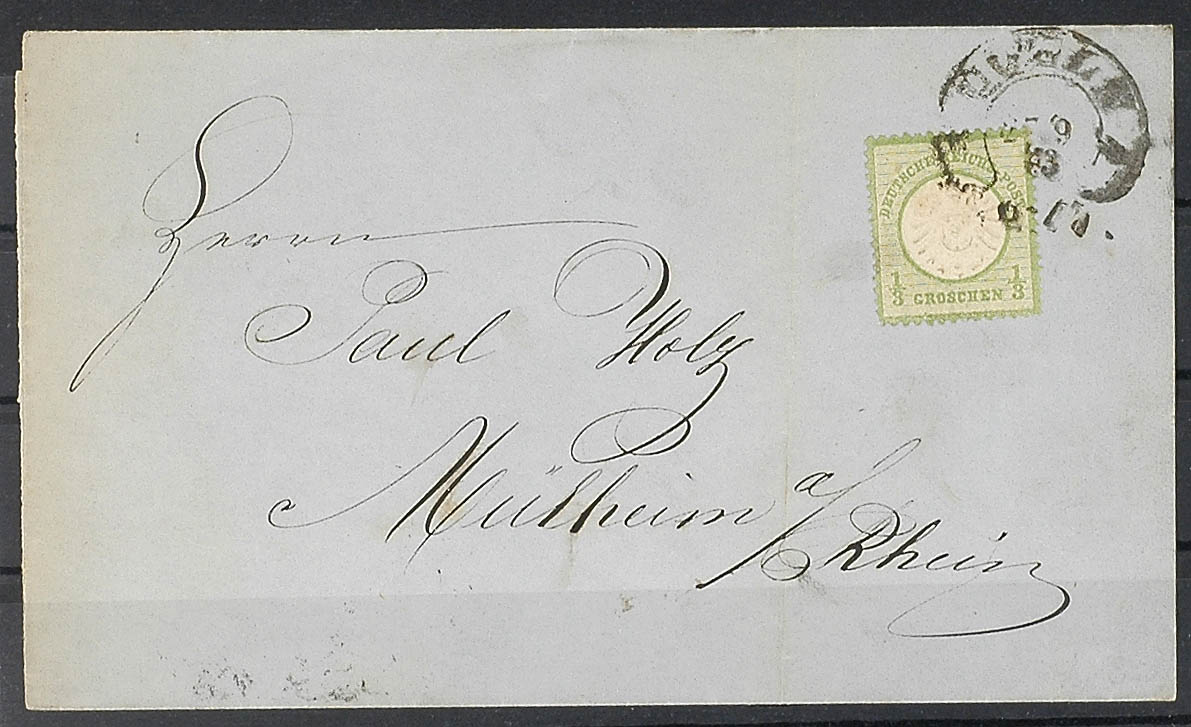 Herrn
Paul Holz
Mülheim a/Rhein
DEUTSCHE REICHS-POST
1/3 GROSCHEN 1/3